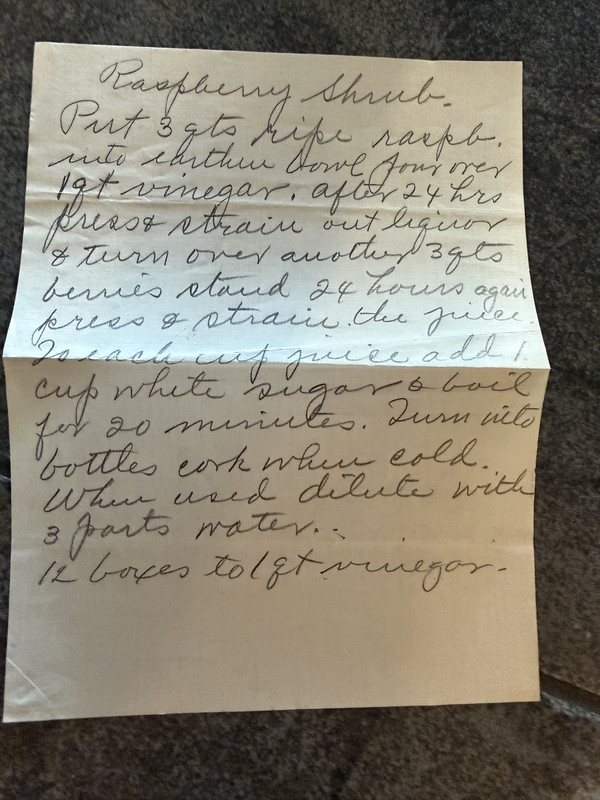 Raspberry Shrub.
Put 3 qts ripe raspb.
into earthen bowl pour over
1 qt vinegar. after 24 hrs
press & strain out liquor
& turn over another 3 qts
berries stand 24 hours again
press & strain the juice.
To each cup juice add 1
cup white sugar & boil
for 20 minutes. Turn into
bottles cork when cold.
When used dilute with
3 parts water.
12 boxes to 1 qt vinegar.